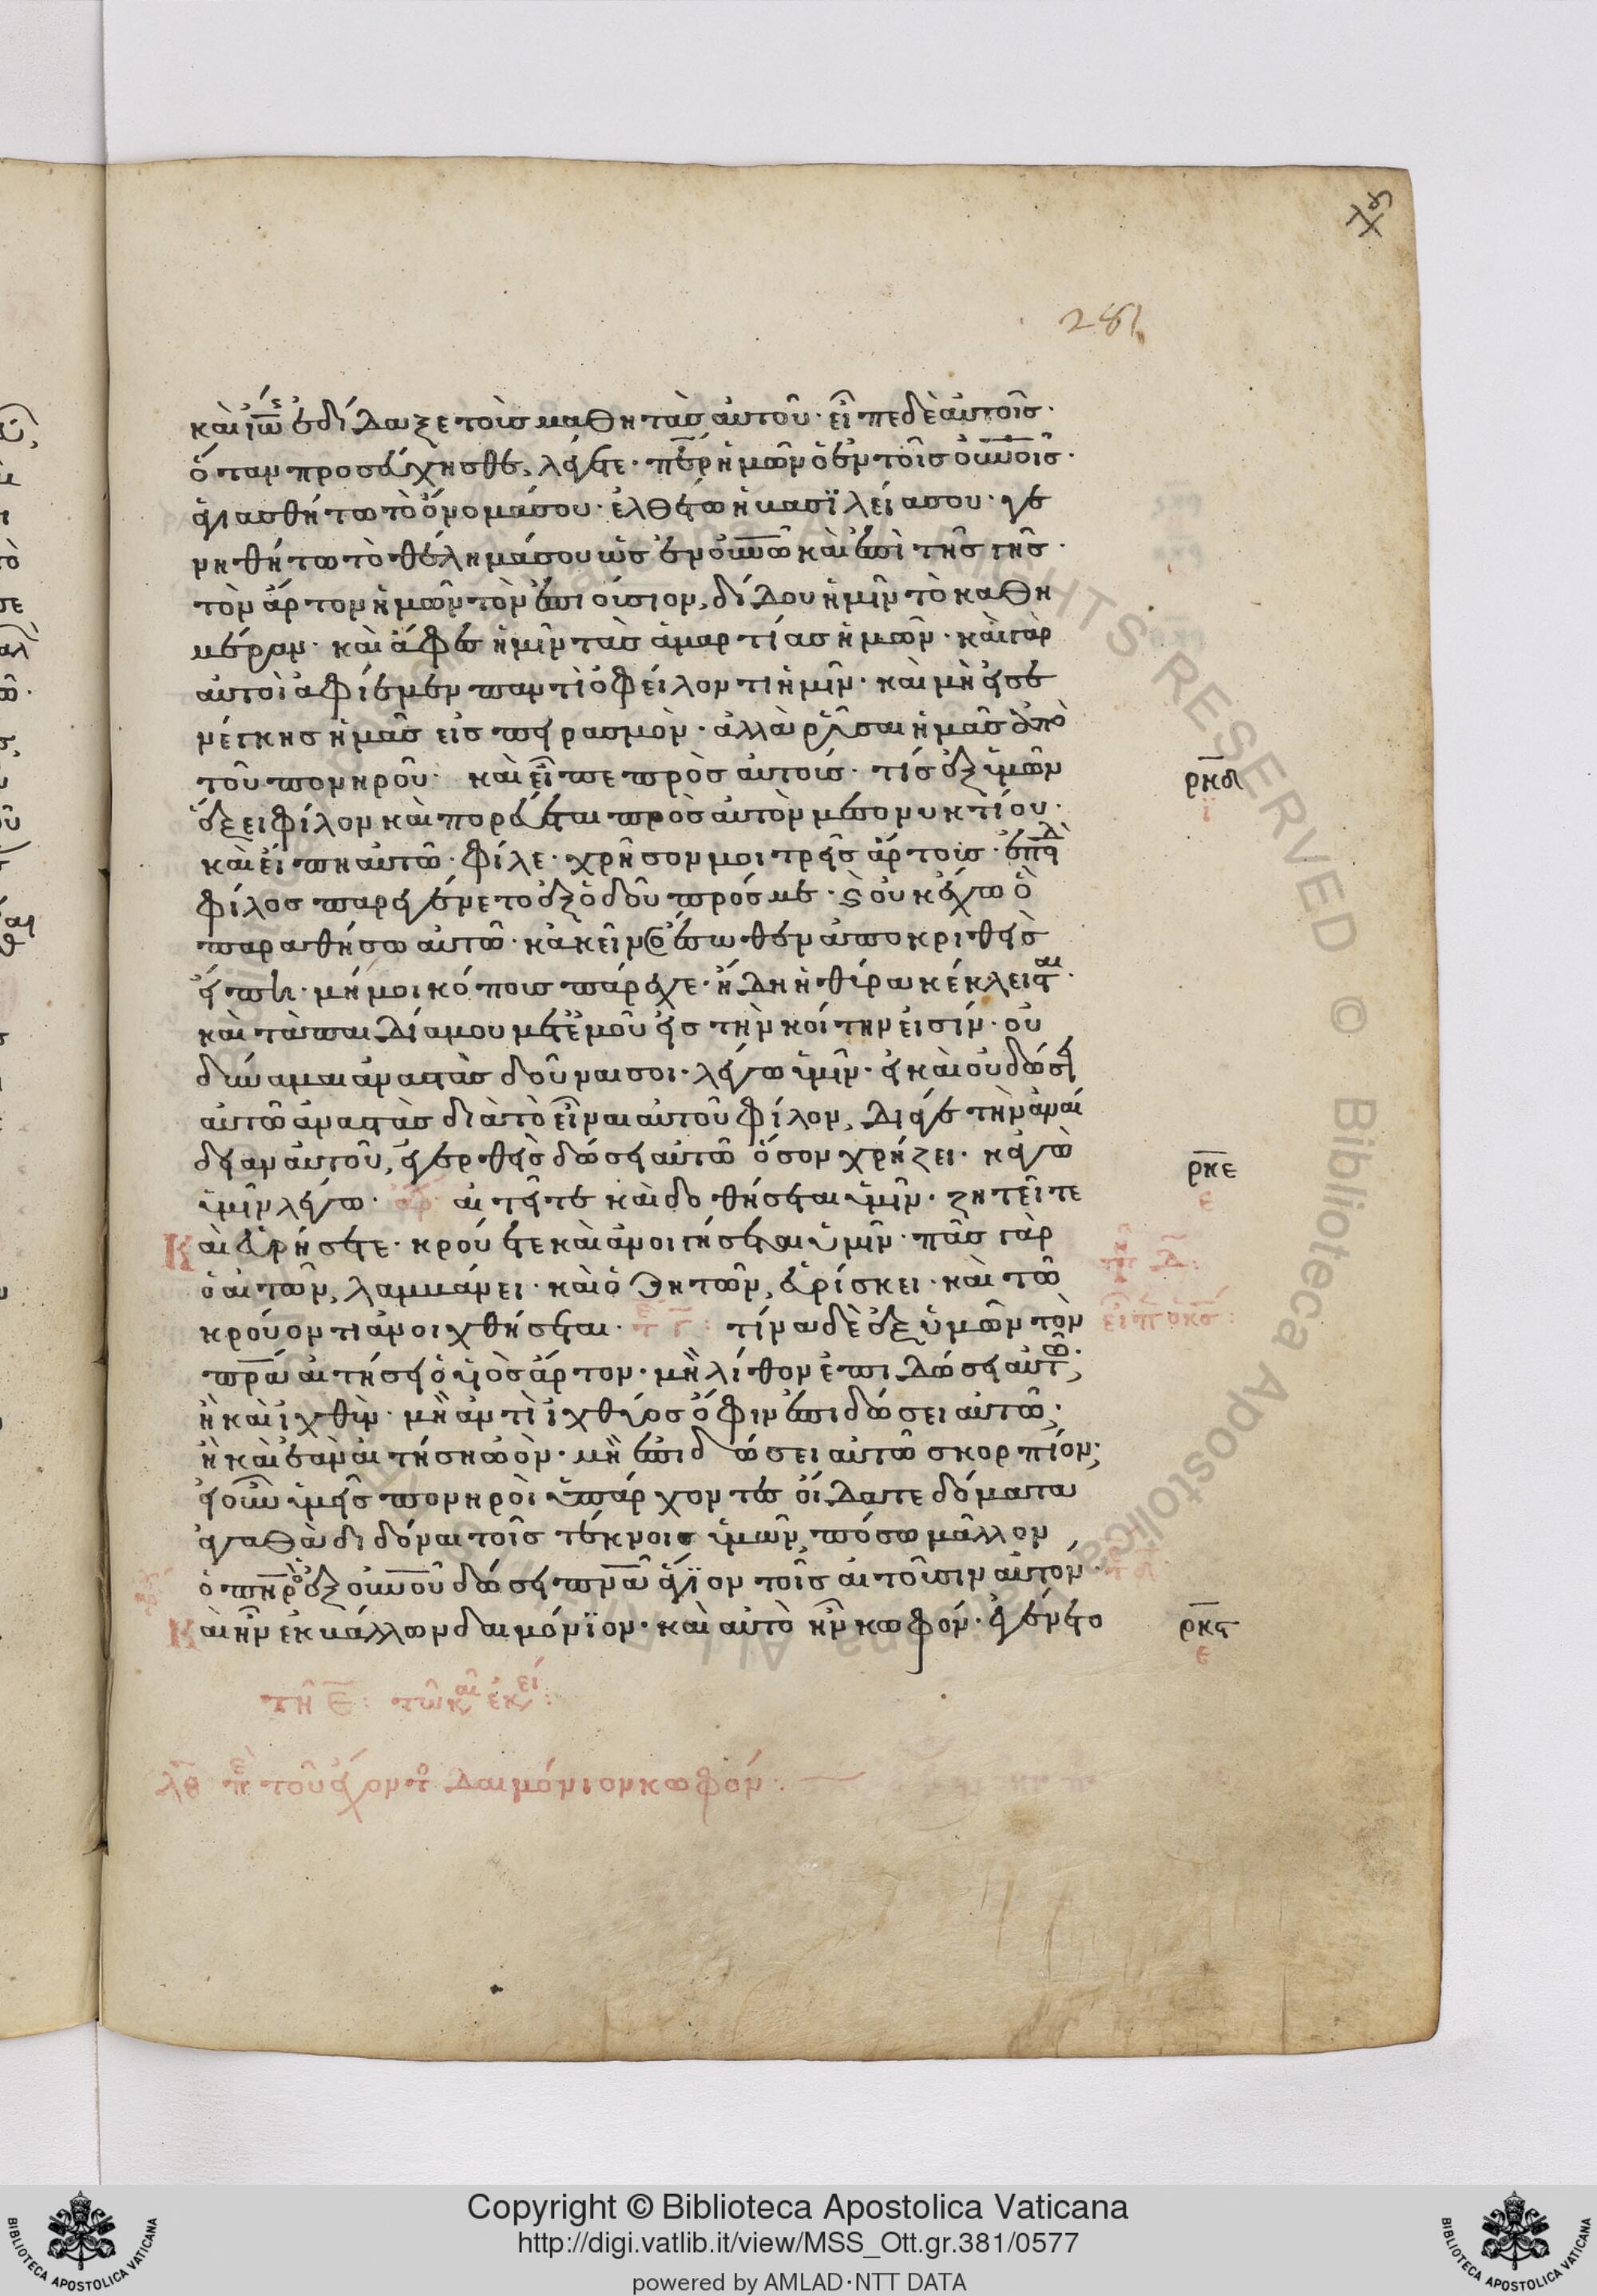 281
καὶ ἰω̅ς ἐδίδαξε τοὺς μαθητὰς αὐτοῦ· εἶπε δὲ αὐτοῖς·
ὅταν προσεύχησθε, λέγετε· πε̅ρ ἡμῶν ὁ ἐν τοῖς οὐ̅νοῖς·
ἁγιασθήτω τὸ ὄνομά σου· ἐλθέτω ἡ βασϊλεία σου· γε
νηθήτω τὸ θέλημά σου ὡς ἐν οὐ̅νῶ καὶ ἐπὶ τῆς γῆς·
τὸν ἄρτον ἡμῶν τὸν ἐπιούσιον, δίδου ἡμῖν τὸ καθη
μέραν· καὶ ἄφες ἡμῖν τὰς ἁμαρτίας ἡμῶν· καὶ γὰρ
αὐτοὶ ἀφίεμεν παντὶ ὀφείλοντι ἡμῖν· καὶ μὴ εἰσε
νέγκης ἡμᾶς εἰς πειρασμὸν· ἀλλὰ ῥῦσαι ἡμᾶς ἀπὸ
τοῦ πονηροῦ· καὶ εἶπε πρὸς αὐτούς· τίς ἐξ ὑμῶν
ἕξει φίλον καὶ πορεύεται πρὸς αὐτὸν μεσονυκτίου·
καὶ εἴπη αὐτῶ· φίλε· χρῆσον μοι τρεῖς ἄρτους· ἐπειδ
φίλος παρεγένετο ἐξ ὁδοῦ πρός με· ϗ οὐκ ἔχω ὃ
παραθήσω αὐτῶ· κἀκεῖνος ἔσωθεν ἀποκριθεὶς
εἴπη· μή μοι κόπους πάρεχε· ἤδη ἡ θύρα κέκλεισται·
καὶ τὰ παιδία μου μετ ἐμοῦ εἰς τὴν κοίτην εἰσίν· οὐ
δύναμαι ἀναστὰς δοῦναι σοι· λέγω ὑμῖν· εἰ καὶ οὐ δώσει
αὐτῶ ἀναστὰς διὰ τὸ εἶναι αὐτοῦ φίλον, διά γε τὴν ἀναί
δειαν αὐτοῦ, ἐγερθεὶς δώσει αὐτῶ ὅσον χρήζει· κἀγὼ
ὑμῖν λέγω· αἰτεῖτε καὶ δοθήσεται ὑμῖν· ζητεῖτε
Καὶ εὑρήσετε· κρούετε καὶ ἀνοιγήσεται ὑμῖν· πᾶς γὰρ
ὁ αἰτῶν, λαμβάνει· καὶ ὁ ζητῶν, εὑρίσκει· καὶ τῶ
κρούοντι ἀνοιχθήσεται· τίνα δὲ ἐξ ὑμῶν τὸν
πρ̅α αἰτήσει ὁ υἱὸς ἄρτον· μὴ λίθον ἐπιδώσει αὐτῶ;
ἢ καὶ ἰχθὺν· μὴ ἀντὶ ἰχθύος ὄφιν ἐπιδώσει αὐτῶ;
ἢ καὶ ἐὰν αἰτήση ὠὸν· μὴ ἐπιδώσει αὐτῶ σκορπίον;
εἰ οὖν ὑμεῖς πονηροὶ ὑπάρχοντες οἴδατε δόματα
ἀγαθὰ διδόναι τοῖς τέκνοις ὑμῶν, πόσω μᾶλλον
ὁ πη̅ρ ὁ ἐξ οὐ̅νοῦ δώσει πν̅α ἅγϊον τοῖς αἰτοῦσιν αὐτόν·
Καὶ ἦν ἐκβάλλων δαιμόνϊον· καὶ αὐτὸ ἦν κωφόν· ἐγένετο
ρ̅κ̅δ̅
ϊ
ρ̅κ̅ε̅
ε
ρ̅κ̅ϛ̅
ε
λθ πε τοῦ ἔχοντος δαιμόνιον κωφόν·
Copyright © Biblioteca Apostolica Vaticana
http://digi.vatlib.it/view/MSS_Ott.gr.381/0577
powered by AMLAD·NTT DATA